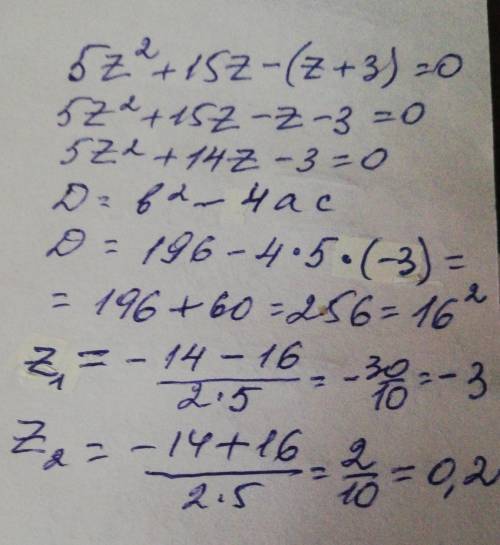 5z² + 15z - (z + 3) = 0
5z² + 15z - z - 3 = 0
5z² + 14z - 3 = 0
D = b² - 4ac
D = 196 - 4·5·(-3) =
= 196 + 60 = 256 = 16²
z₁ = -14 - 16 / 2·5 = -30/10 = -3
z₂ = -14 + 16 / 2·5 = 2/10 = 0,2